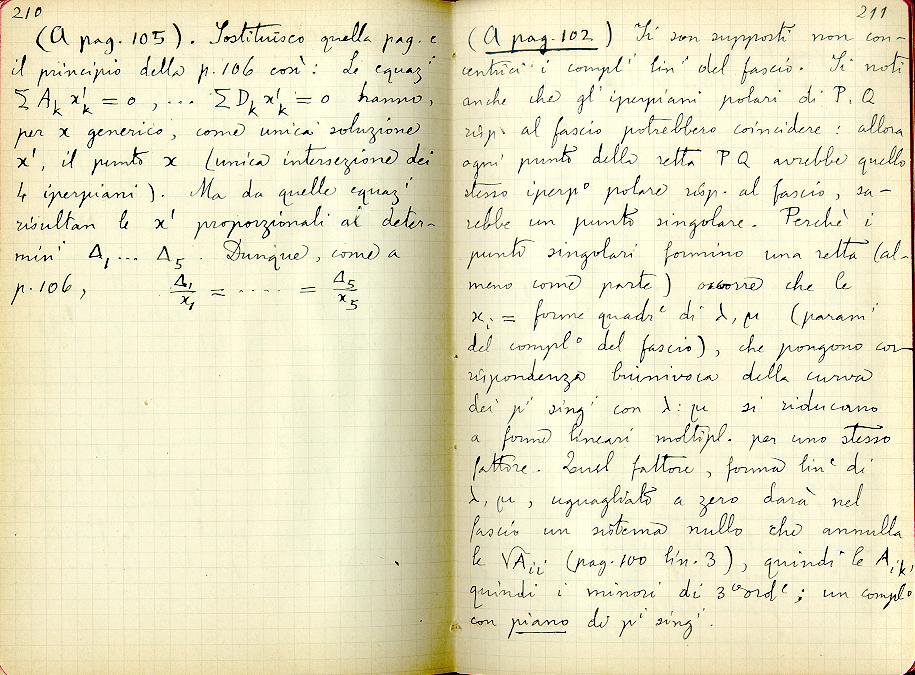 210
(A pag. 105). Sostituisco quella pag. e
il principio della p. 106 così: Le equaz.ⁱ
∑ A_k x'_k = 0, ... ∑ D_k x'_k = 0 hanno,
per x generico, come unica soluzione
x', il punto x (unica intersezione dei
4 iperpiani). Ma da quelle equaz.ⁱ
risultan le x' proporzionali ai deter-
minⁱ Δ₁ ... Δ₅. Dunque, come a
p. 106, Δ₁/x₁ = ..... = Δ₅/x₅
211
(A pag. 102) Si son supposti non con-
centrici i complⁱ linⁱ del fascio. Si noti
anche che gl' iperpiani polari di P, Q
risp. al fascio potrebbero coincidere: allora
ogni punto della retta PQ avrebbe quello
stesso iperpº polare risp. al fascio, sa-
rebbe un punto singolare. Perchè i
punti singolari formino una retta (al-
meno come parte) occorre che le
x_i = forme quadrᵉ di λ, μ (paramⁱ
del complº del fascio), che pongono cor-
rispondenza biunivoca della curva
dei pⁱ singⁱ con λ:μ si riducano
a forme lineari moltipl. per uno stesso
fattore. Quel fattore, forma linᵉ di
λ, μ, uguagliato a zero darà nel
fascio un sistema nullo che annulla
le √A_ii (pag. 100 lin. 3), quindi le A_ik,
quindi i minori di 3º ordᵉ; un complº
con piano di pⁱ singⁱ.